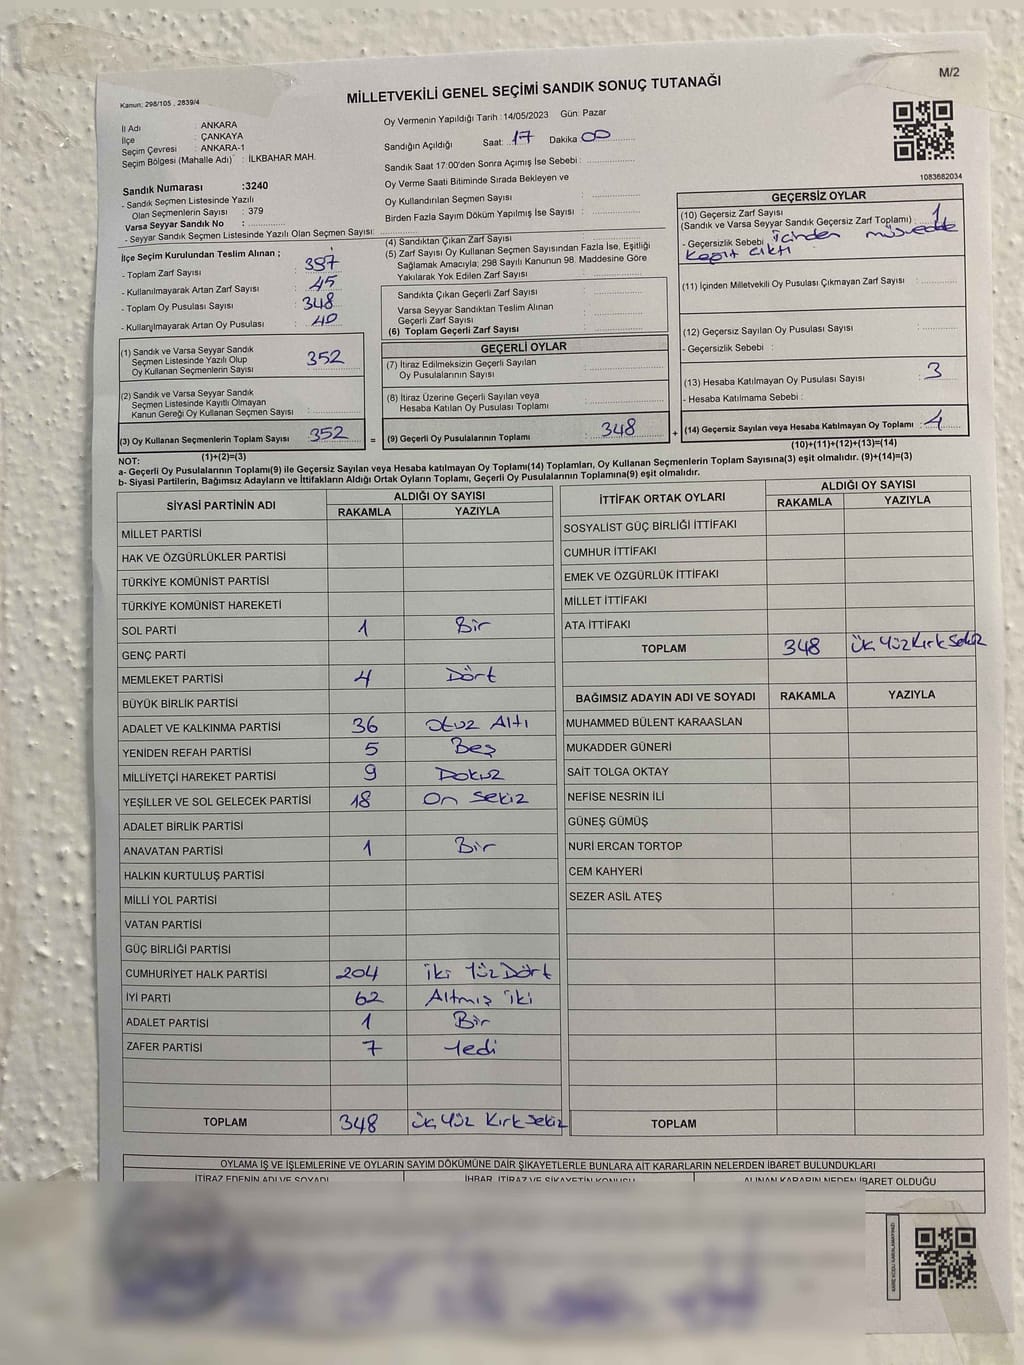 M/2
MİLLETVEKİLİ GENEL SEÇİMİ SANDIK SONUÇ TUTANAĞI
Kanun: 298/105 , 2839/4
İl Adı : ANKARA
İlçe : ÇANKAYA
Seçim Çevresi : ANKARA-1
Seçim Bölgesi (Mahalle Adı) : İLKBAHAR MAH.
Sandık Numarası :3240
- Sandık Seçmen Listesinde Yazılı
Olan Seçmenlerin Sayısı : 379
Varsa Seyyar Sandık No :
- Seyyar Sandık Seçmen Listesinde Yazılı Olan Seçmen Sayısı:
Oy Vermenin Yapıldığı Tarih : 14/05/2023 Gün: Pazar
Sandığın Açıldığı Saat: 17 Dakika 00
Sandık Saat 17:00'den Sonra Açımış İse Sebebi :
Oy Verme Saati Bitiminde Sırada Bekleyen ve
Oy Kullandırılan Seçmen Sayısı :
Birden Fazla Sayım Döküm Yapılmış İse Sayısı :
1083682034
İlçe Seçim Kurulundan Teslim Alınan ;
- Toplam Zarf Sayısı : 397
- Kullanılmayarak Artan Zarf Sayısı : 45
- Toplam Oy Pusulası Sayısı : 348
- Kullanılmayarak Artan Oy Pusulası : 40
(1) Sandık ve Varsa Seyyar Sandık
Seçmen Listesinde Yazılı Olup
Oy Kullanan Seçmenlerin Sayısı : 352
(2) Sandık ve Varsa Seyyar Sandık
Seçmen Listesinde Kayıtlı Olmayan
Kanun Gereği Oy Kullanan Seçmen Sayısı :
(3) Oy Kullanan Seçmenlerin Toplam Sayısı : 352
(1)+(2)=(3)
(4) Sandıktan Çıkan Zarf Sayısı :
(5) Zarf Sayısı Oy Kullanan Seçmen Sayısından Fazla İse, Eşitliği
Sağlamak Amacıyla; 298 Sayılı Kanunun 98. Maddesine Göre
Yakılarak Yok Edilen Zarf Sayısı :
Sandıkta Çıkan Geçerli Zarf Sayısı :
Varsa Seyyar Sandıktan Teslim Alınan
Geçerli Zarf Sayısı :
(6) Toplam Geçerli Zarf Sayısı :
GEÇERLİ OYLAR
(7) İtiraz Edilmeksizin Geçerli Sayılan
Oy Pusulalarının Sayısı :
(8) İtiraz Üzerine Geçerli Sayılan veya
Hesaba Katılan Oy Pusulası Toplamı :
= (9) Geçerli Oy Pusulalarının Toplamı : 348 +
GEÇERSİZ OYLAR
(10) Geçersiz Zarf Sayısı
(Sandık ve Varsa Seyyar Sandık Geçersiz Zarf Toplamı) : 1
- Geçersizlik Sebebi : içinden müsvedde
kağıt çıktı
(11) İçinden Milletvekili Oy Pusulası Çıkmayan Zarf Sayısı :
(12) Geçersiz Sayılan Oy Pusulası Sayısı :
- Geçersizlik Sebebi :
(13) Hesaba Katılmayan Oy Pusulası Sayısı : 3
- Hesaba Katılmama Sebebi :
(14) Geçersiz Sayılan veya Hesaba Katılmayan Oy Toplamı : 4
(10)+(11)+(12)+(13)=(14)
NOT:
a- Geçerli Oy Pusulalarının Toplamı(9) ile Geçersiz Sayılan veya Hesaba katılmayan Oy Toplamı(14) Toplamları, Oy Kullanan Seçmenlerin Toplam Sayısına(3) eşit olmalıdır. (9)+(14)=(3)
b- Siyasi Partilerin, Bağımsız Adayların ve İttifakların Aldığı Ortak Oyların Toplamı, Geçerli Oy Pusulalarının Toplamına(9) eşit olmalıdır.
SİYASİ PARTİNİN ADI ALDIĞI OY SAYISI
RAKAMLA YAZIYLA
MİLLET PARTİSİ
HAK VE ÖZGÜRLÜKLER PARTİSİ
TÜRKİYE KOMÜNİST PARTİSİ
TÜRKİYE KOMÜNİST HAREKETİ
SOL PARTİ 1 Bir
GENÇ PARTİ
MEMLEKET PARTİSİ 4 Dört
BÜYÜK BİRLİK PARTİSİ
ADALET VE KALKINMA PARTİSİ 36 Otuz Altı
YENİDEN REFAH PARTİSİ 5 Beş
MİLLİYETÇİ HAREKET PARTİSİ 9 Dokuz
YEŞİLLER VE SOL GELECEK PARTİSİ 18 On Sekiz
ADALET BİRLİK PARTİSİ
ANAVATAN PARTİSİ 1 Bir
HALKIN KURTULUŞ PARTİSİ
MİLLİ YOL PARTİSİ
VATAN PARTİSİ
GÜÇ BİRLİĞİ PARTİSİ
CUMHURİYET HALK PARTİSİ 204 İki Yüz Dört
İYİ PARTİ 62 Altmış İki
ADALET PARTİSİ 1 Bir
ZAFER PARTİSİ 7 Yedi
TOPLAM 348 Üç Yüz Kırk Sekiz
İTTİFAK ORTAK OYLARI ALDIĞI OY SAYISI
RAKAMLA YAZIYLA
SOSYALİST GÜÇ BİRLİĞİ İTTİFAKI
CUMHUR İTTİFAKI
EMEK VE ÖZGÜRLÜK İTTİFAKI
MİLLET İTTİFAKI
ATA İTTİFAKI
TOPLAM 348 Üç Yüz Kırk Sekiz
BAĞIMSIZ ADAYIN ADI VE SOYADI RAKAMLA YAZIYLA
MUHAMMED BÜLENT KARAASLAN
MUKADDER GÜNERİ
SAİT TOLGA OKTAY
NEFİSE NESRİN İLİ
GÜNEŞ GÜMÜŞ
NURİ ERCAN TORTOP
CEM KAHYERİ
SEZER ASİL ATEŞ
TOPLAM
OYLAMA İŞ VE İŞLEMLERİNE VE OYLARIN SAYIM DÖKÜMÜNE DAİR ŞİKAYETLERLE BUNLARA AİT KARARLARIN NELERDEN İBARET BULUNDUKLARI
İTİRAZ EDENİN ADI VE SOYADI İHBAR, İTİRAZ VE ŞİKAYETİN KONUSU ALINAN KARARIN NEDEN İBARET OLDUĞU